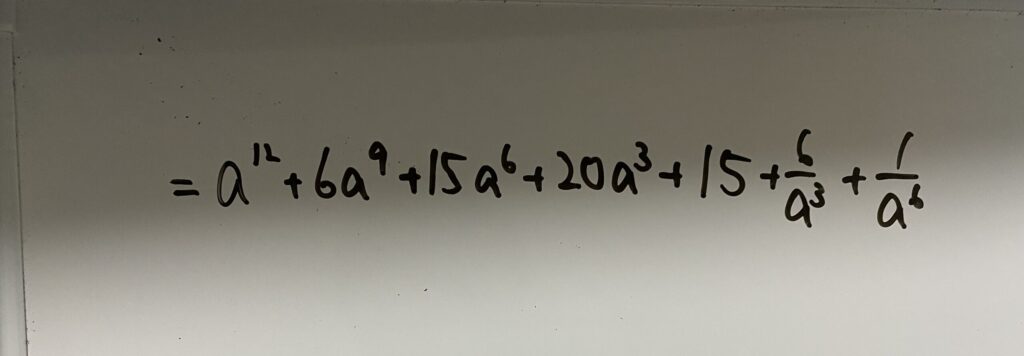 = a¹² + 6a⁹ + 15a⁶ + 20a³ + 15 + 6/a³ + 1/a⁶